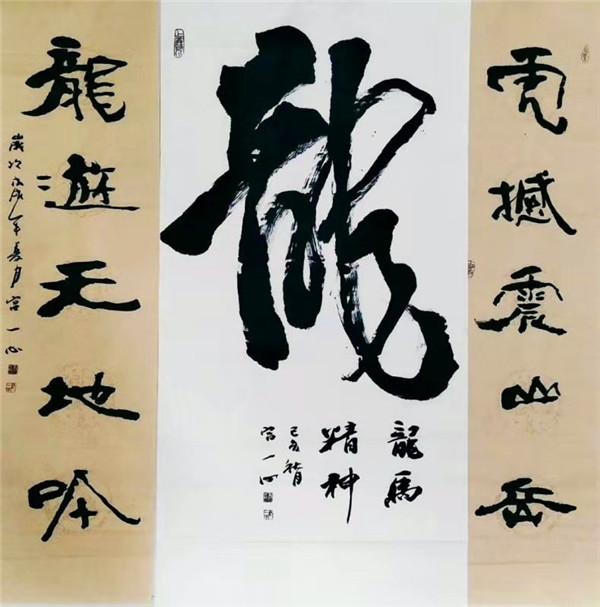 虎撼震山岳
龍
龍馬
精神
己亥
宫一心
龍遊天地吟
歲次戊戌年夏月宫一心